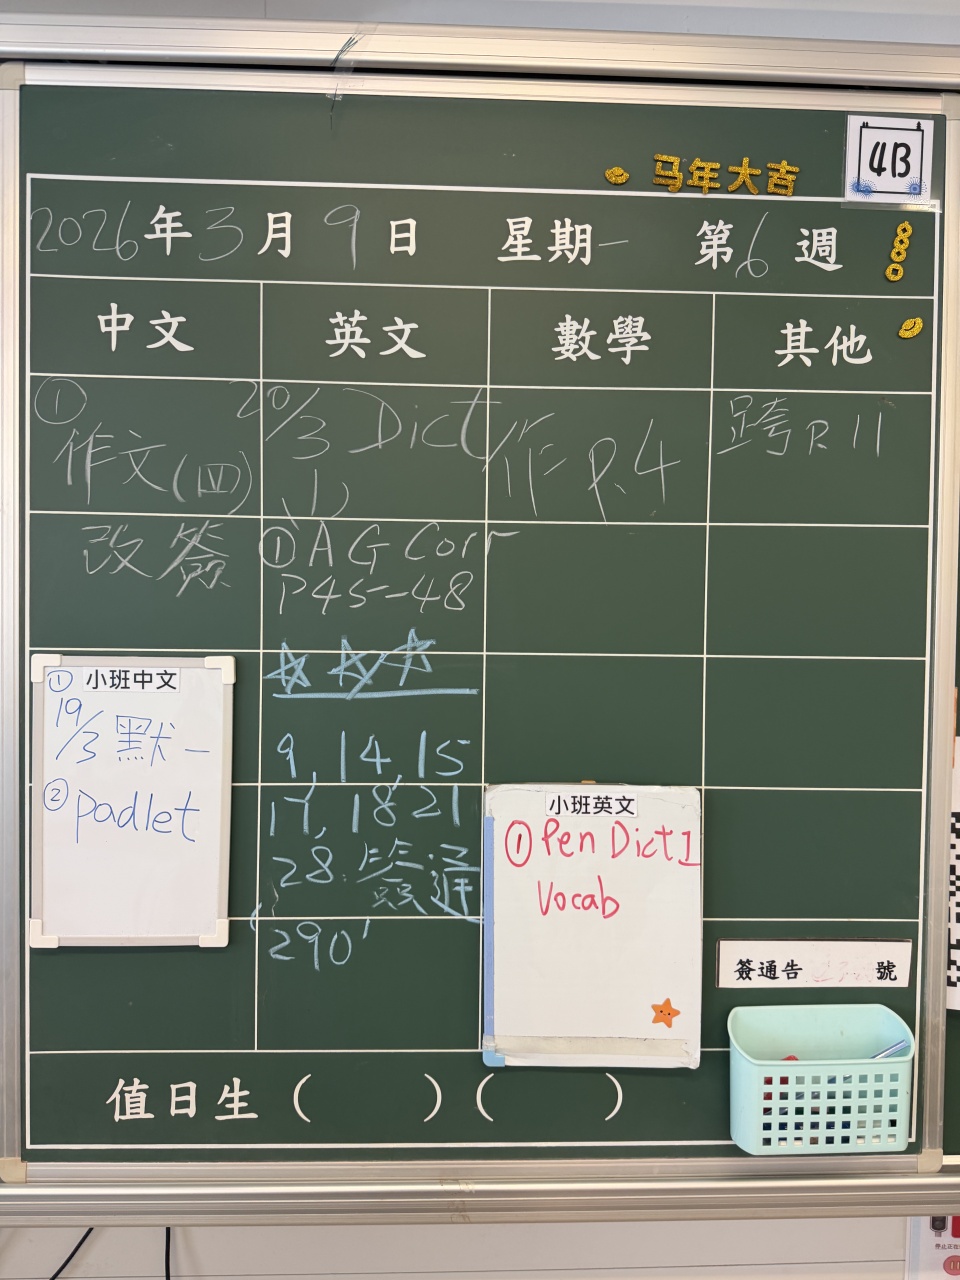 马年大吉
4B
2026年3月9日 星期一 第6週
中文 英文 數學 其他
①
作文(四)
改簽
20/3 Dict
(1)
① AG Corr
P45-48
9, 14, 15
17, 18, 21
28. 簽通
290
作 P.4
跨 P. 11
小班中文
①
19/3 默一
② padlet
小班英文
① Pen Dict 1
Vocab
簽通告 號
值日生 ( ) ( )